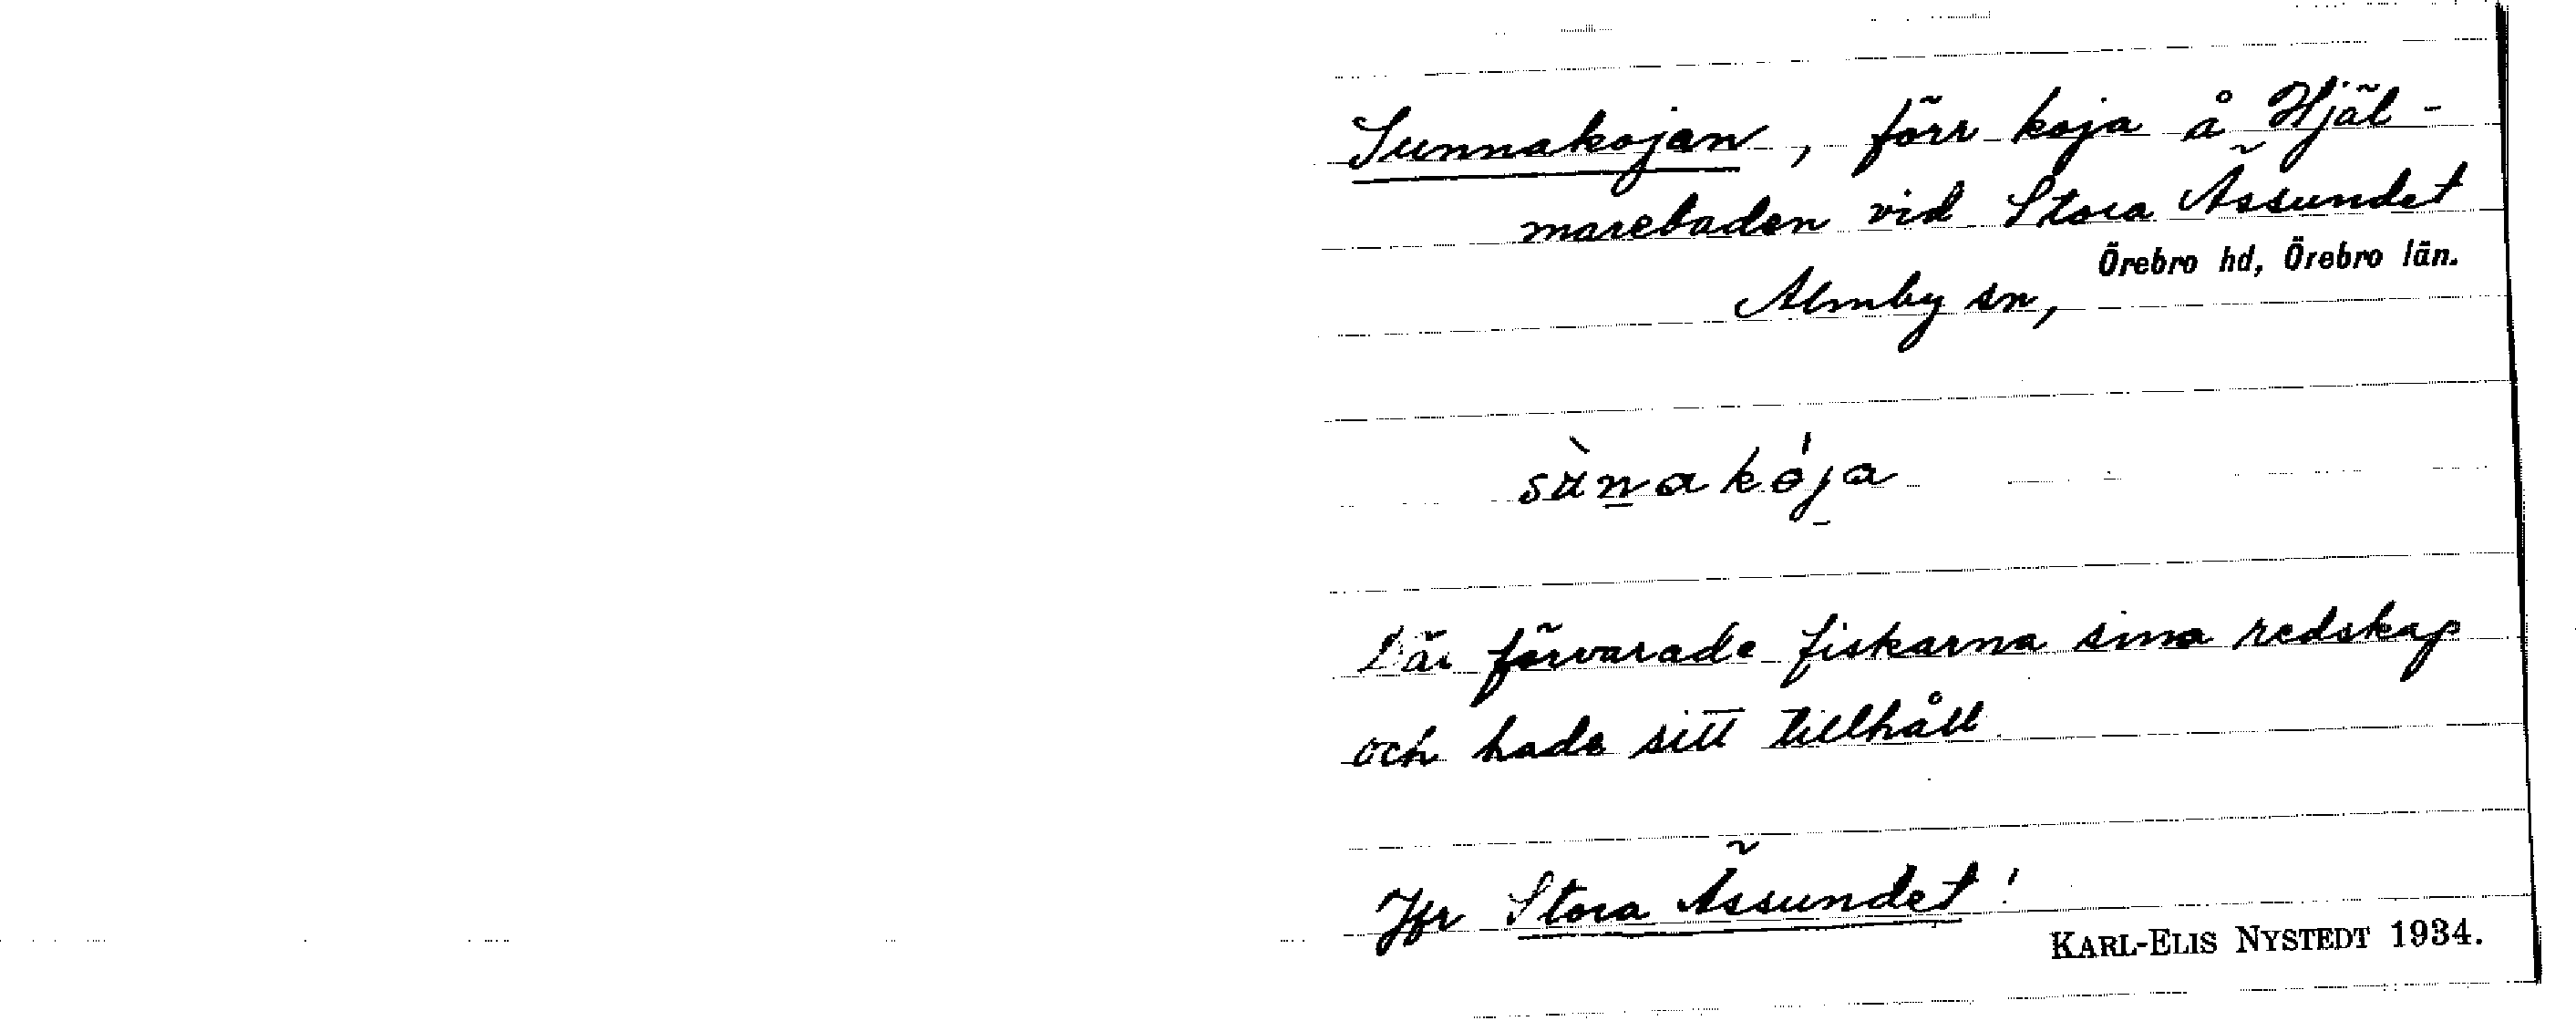 Sunnakojan, förr koja å Hjäl-
marebaden vid Stora Ässundet
Örebro hd, Örebro län.
Almby sn,
sùnakója
Där förvarade fiskarna sina redskap
och hade sitt tillhåll.
Jfr Stora Ässundet!
KARL-ELIS NYSTEDT 1934.